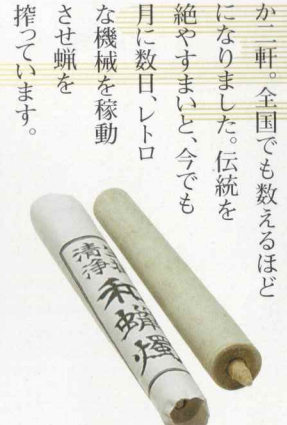 か二軒。全国でも数えるほど
になりました。伝統を
絶やすまいと、今でも
月に数日、レトロ
な機械を稼動
させ蝋を
搾っています。
清浄
和蝋燭